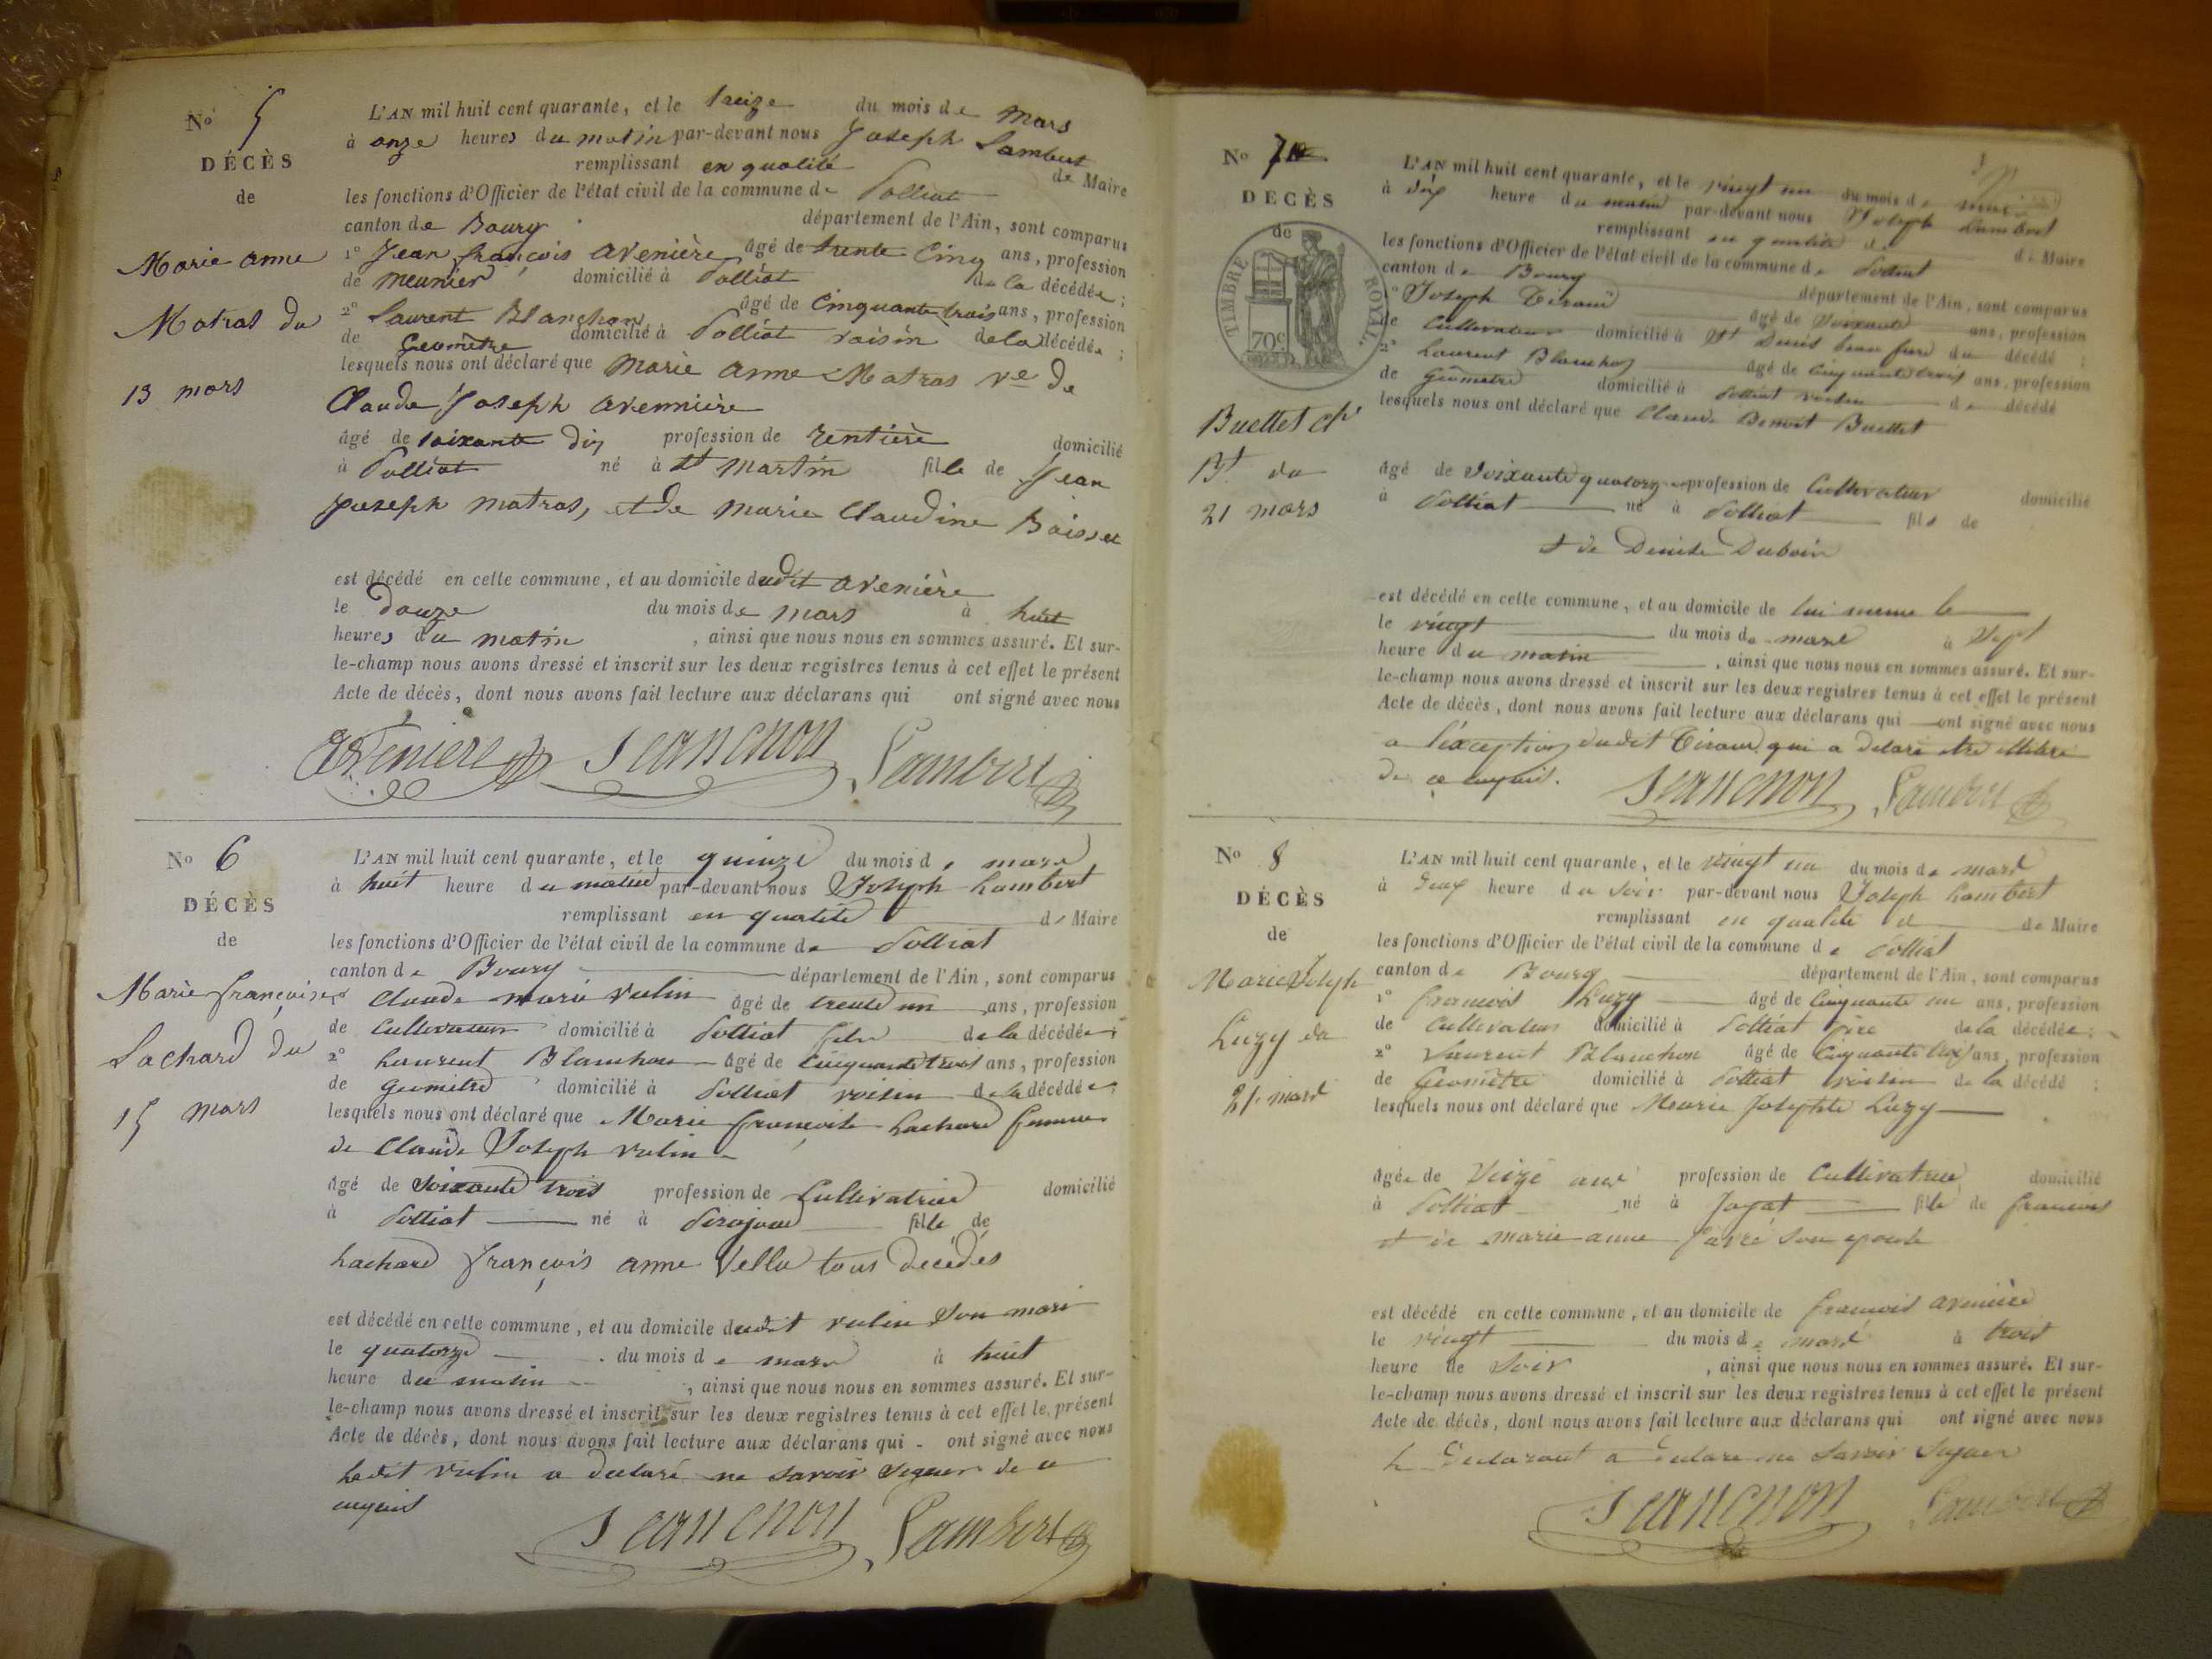 No 5
DÉCÈS
de
Marie anne
Matras du
13 mars
L'AN mil huit cent quarante, et le treize du mois de mars
à onze heures du matin par-devant nous Joseph Lambert
remplissant en qualité de Maire
les fonctions d'Officier de l'état civil de la commune de Polliat
canton de Bourg département de l'Ain, sont comparus
1º Jean françois avenière âgé de trente Cinq ans, profession
de meunier domicilié à Polliat de la décédée;
2º Laurent Blanchon âgé de Cinquante trois ans, profession
de Géomètre domicilié à Polliat voisin de la décédée;
lesquels nous ont déclaré que Marie anne Matras ve de
Claude Joseph avennière
âgé de soixante dix profession de rentière domicilié
à Polliat né à St Martin fille de Jean
joseph matras, et de marie Claudine Boisset
est décédé en cette commune, et au domicile dudit avenière
le douze du mois de mars à huit
heures du matin, ainsi que nous nous en sommes assuré. Et sur-
le-champ nous avons dressé et inscrit sur les deux registres tenus à cet effet le présent
Acte de décès, dont nous avons fait lecture aux déclarans qui ont signé avec nous
avenière Blanchon Lambert
No 6
DÉCÈS
de
Marie françoise
Lachard du
15 mars
L'AN mil huit cent quarante, et le quinze du mois de mars
à huit heure du matin par-devant nous Joseph Lambert
remplissant en qualité de Maire
les fonctions d'Officier de l'état civil de la commune de Polliat
canton de Bourg département de l'Ain, sont comparus
Claude marie vulin âgé de trente un ans, profession
de Cultivateur domicilié à Polliat fils de la décédée;
2º Laurent Blanchon âgé de Cinquante trois ans, profession
de géomètre domicilié à Polliat voisin de la décédée;
lesquels nous ont déclaré que Marie françoise Lachard femme
de Claude Joseph vulin
âgé de soixante trois profession de Cultivatrice domicilié
à Polliat né à fille de
Lachard françois anne Vellu tous décédés
est décédé en cette commune, et au domicile dudit vulin son mari
le quatorze du mois de mars à huit
heure du matin, ainsi que nous nous en sommes assuré. Et sur-
le-champ nous avons dressé et inscrit sur les deux registres tenus à cet effet le présent
Acte de décès, dont nous avons fait lecture aux déclarans qui ont signé avec nous
Ledit vulin a déclaré ne savoir signer de ce
enquis
Blanchon Lambert
No 7
DÉCÈS
de
TIMBRE ROYAL
70c
Buettet Cl
Bt du
21 mars
L'AN mil huit cent quarante, et le vingt un du mois de mars
à dix heure du matin par-devant nous Joseph Lambert
remplissant en qualité de Maire
les fonctions d'Officier de l'état civil de la commune de Polliat
canton de Bourg département de l'Ain, sont comparus
1º Joseph Tiraud âgé de soixante ans, profession
de Cultivateur domicilié à St Denis beau frere du décédé;
2º Laurent Blanchon âgé de Cinquante trois ans, profession
de géomètre domicilié à Polliat voisin de décédé
lesquels nous ont déclaré que Claude Benoit Buettet
âgé de soixante quatorze profession de Cultivateur domicilié
à Polliat né à Polliat fils de
et de Denise Duboin
est décédé en cette commune, et au domicile de lui meme le
le vingt du mois de mars à sept
heure du matin, ainsi que nous nous en sommes assuré. Et sur-
le-champ nous avons dressé et inscrit sur les deux registres tenus à cet effet le présent
Acte de décès, dont nous avons fait lecture aux déclarans qui ont signé avec nous
a l'exception dudit Tiraud qui a déclaré etre illétré
de ce enquis.
Blanchon Lambert
No 8
DÉCÈS
de
Marie Joseph
Luzy du
21 mars
L'AN mil huit cent quarante, et le vingt un du mois de mars
à deux heure du soir par-devant nous Joseph Lambert
remplissant en qualité d de Maire
les fonctions d'Officier de l'état civil de la commune de Polliat
canton de Bourg département de l'Ain, sont comparus
1º françois Luzy âgé de Cinquante un ans, profession
de Cultivateur domicilié à Polliat père de la décédée;
2º Laurent Blanchon âgé de Cinquante trois ans, profession
de Géomètre domicilié à Polliat voisin de la décédé;
lesquels nous ont déclaré que Marie Josephte Luzy
âgée de seize ans profession de Cultivatrice domicilié
à Polliat né à Jayat fille de françois
et de marie anne favre son epouse
est décédé en cette commune, et au domicile de françois avenière
le vingt du mois de mars à trois
heure de soir, ainsi que nous nous en sommes assuré. Et sur-
le-champ nous avons dressé et inscrit sur les deux registres tenus à cet effet le présent
Acte de décès, dont nous avons fait lecture aux déclarans qui ont signé avec nous
le déclarant a déclaré ne savoir signer
Blanchon Lambert